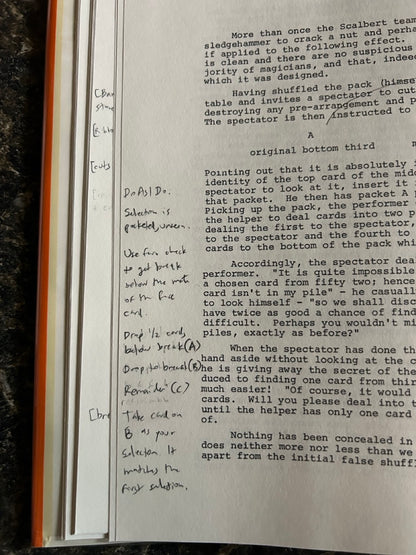 More than once the Scalbert team
sledgehammer to crack a nut and perha
if applied to the following effect.
is clean and there are no suspicious
jority of magicians, and that, indeed
which it was designed.
Having shuffled the pack (himse
table and invites a spectator to cut
destroying any pre-arrangement and p
The spectator is then instructed to
A
original bottom third
Pointing out that it is absolutely i
identity of the top card of the midd
spectator to look at it, insert it i
that packet. He then has packet A p
Picking up the pack, the performer
the helper to deal cards into two p
dealing the first to the spectator,
to the spectator and the fourth to
cards to the bottom of the pack whi
Accordingly, the spectator deal
performer. "It is quite impossible
a chosen card from fifty two; hence
card isn't in my pile" - he casuall
to look himself - "so we shall disc
have twice as good a chance of find
difficult. Perhaps you wouldn't mi
piles, exactly as before?"
When the spectator has done th
hand aside without looking at the c
he is giving away the secret of the
duced to finding one card from thir
much easier! "Of course, it would
cards. Will you please deal into t
until the helper has only one card
of.
Nothing has been concealed in
does neither more nor less than we
apart from the initial false shuff
[cuts
Do As I Do.
Selection is
pocketed, unseen.
Use fan check
to get break
below the mate
of the face
card.
Drop 1/2 cards
below break (A)
Drop to break (B)
Remainder (C)
Take card on
B as your
selection. It
matches the
first selection.